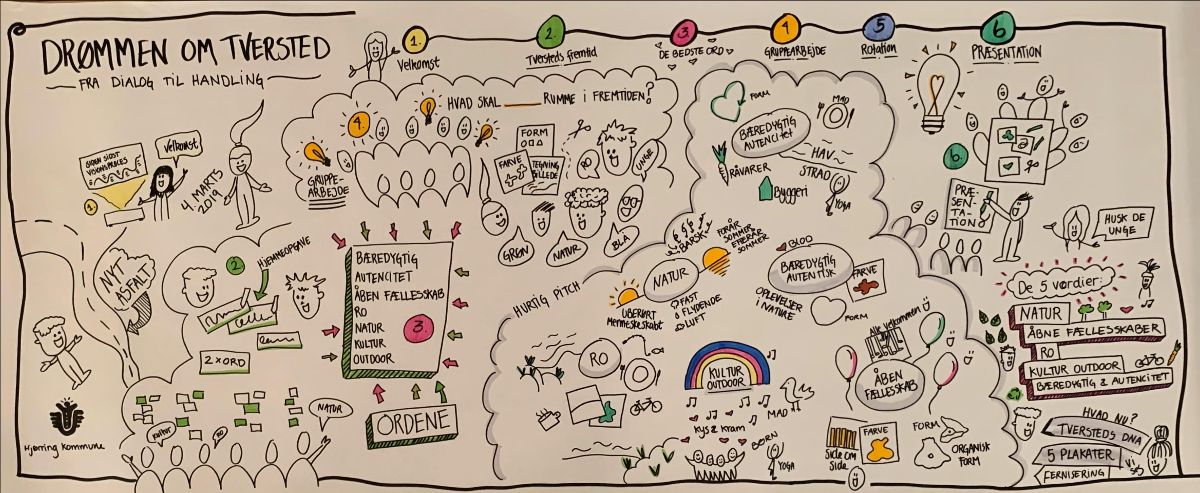 DRØMMEN OM TVERSTED
FRA DIALOG TIL HANDLING
1.
Velkomst
2.
Tversteds fremtid
3.
DE BEDSTE ORD
4
GRUPPEARBEJDE
5
Rotation
6
PRÆSENTATION
SIDEN SIDST
VISIONSPROCES
Velkomst
1.
4. MARTS
2019
NYT
ASFALT
Hjørring Kommune
2.
HJEMMEOPGAVE
2 x ORD
Kultur
RO
NATUR
4.
HVAD SKAL ____ RUMME I FREMTIDEN?
GRUPPE-
ARBEJDE
FORM
FARVE
TEGNING
BILLEDE
RO
UNGE
GRØN
NATUR
BLÅ
BÆREDYGTIG
AUTENCITET
ÅBEN FÆLLESSKAB
RO
NATUR
KULTUR
OUTDOOR
3.
ORDENE
FORM
MAD
BÆREDYGTIG
AUTENCITET
HAV
RÅVARER
STRAD
Byggeri
YOGA
HURTIG PITCH
BARSK
FORÅR
SOMMER
EFTERÅR
SOMMER
NATUR
UBERØRT
Menneskeskabt
FAST
FLYDENDE
LUFT
BLOD
BÆREDYGTIG
AUTENTISK
FARVE
OPLEVELSER
I NATURE
FORM
RO
KULTUR
OUTDOOR
MAD
KYS & KRAM
BØRN
YOGA
Alle velkommen
ÅBEN
FÆLLESSKAB
Side om
Side
FARVE
FORM
ORGANISK
FORM
6.
PRÆ-
SEN-
TA-
TION
HUSK DE
UNGE
De 5 værdier:
NATUR
ÅBNE FÆLLESKABER
RO
KULTUR OUTDOOR
BÆREDYGTIG & AUTENCITET
HVAD NU?
TVERSTEDS DNA
5 PLAKATER
FERNISERING
Vi